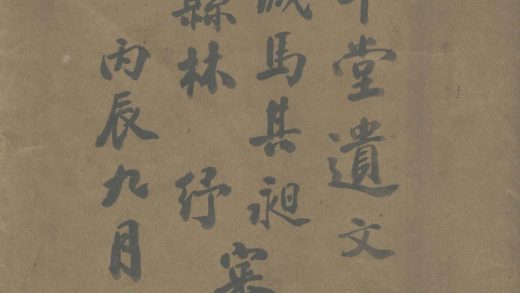 堂遺文
城馬其昶
縣林紓
丙辰九月